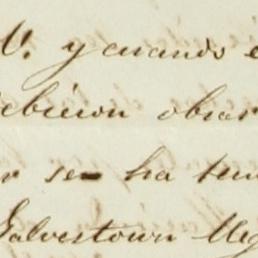 V. y cuando e
ebieron obrar
r se ha ten
Galvestown Meg